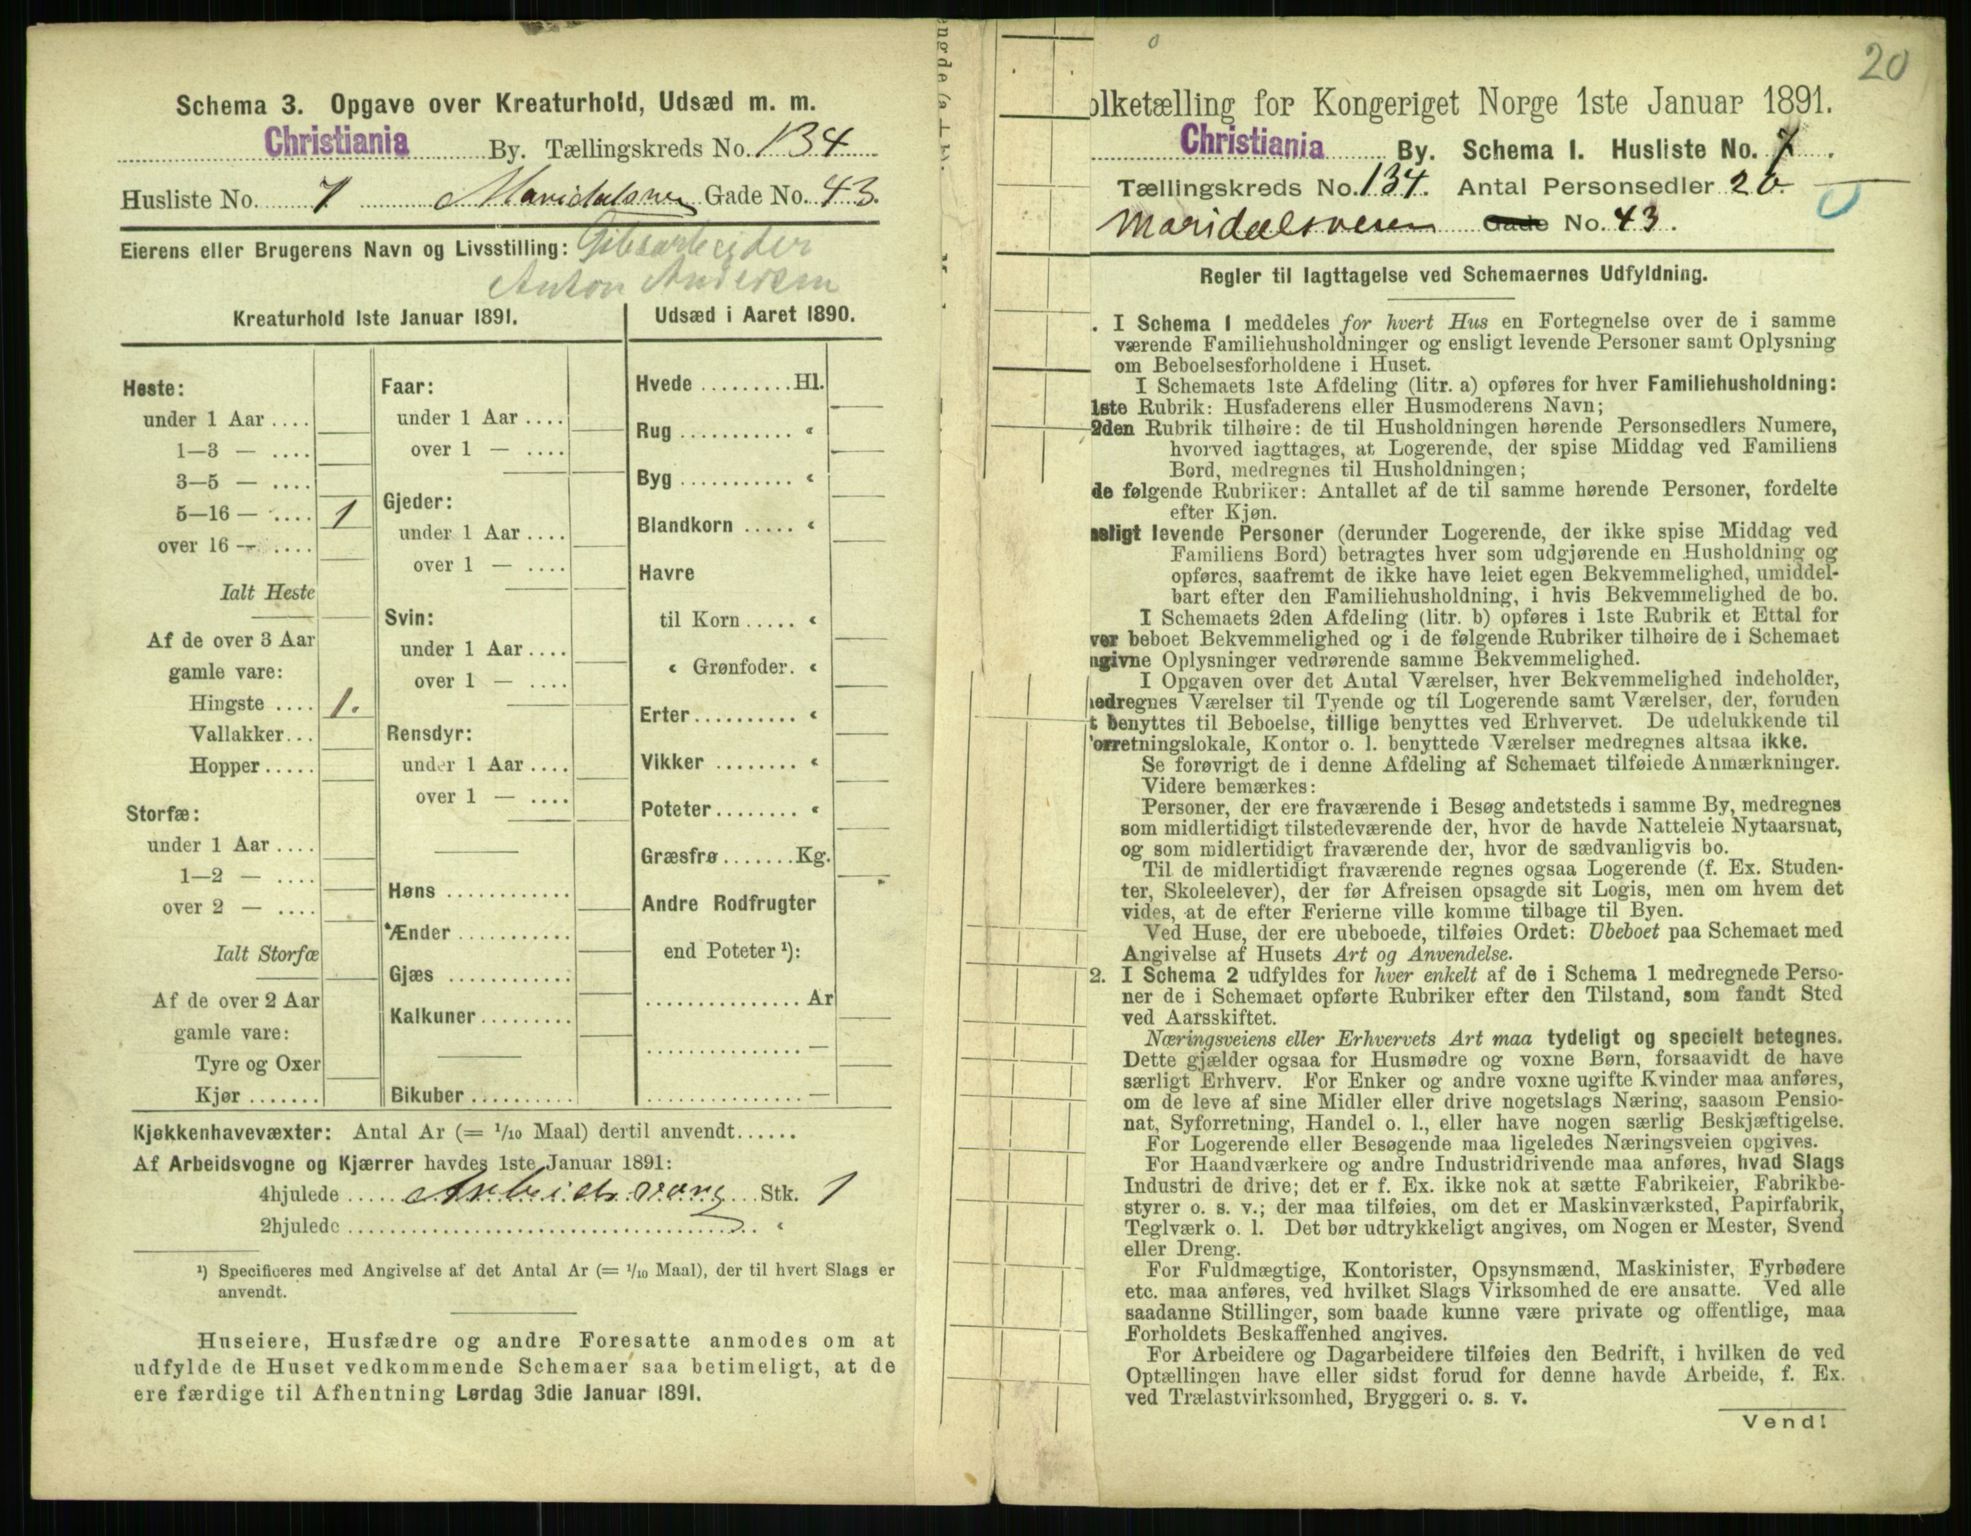 Schema 3. Opgave over Kreaturhold, Udsæd m. m.
Christiania By. Tællingskreds No. 134
Husliste No. 7 Maridalsvei Gade No. 43.
Eierens eller Brugerens Navn og Livsstilling: Gibsarbeider
Anton Andersen
Kreaturhold 1ste Januar 1891.
Heste:
under 1 Aar ....
1—3 — ....
3—5 — ....
5—16 — .... 1
over 16 — ....
Ialt Heste
Af de over 3 Aar
gamle vare:
Hingste .... 1.
Vallakker...
Hopper.....
Storfæ:
under 1 Aar ....
1—2 — ....
over 2 — ....
Ialt Storfæ
Af de over 2 Aar
gamle vare:
Tyre og Oxer
Kjør .......
Faar:
under 1 Aar ....
over 1 — ....
Gjeder:
under 1 Aar ....
over 1 — ....
Svin:
under 1 Aar ....
over 1 — ....
Rensdyr:
under 1 Aar ....
over 1 — ....
Høns ............
Ænder ...........
Gjæs ............
Kalkuner.........
Bikuber ..........
Udsæd i Aaret 1890.
Hvede .........Hl.
Rug ........... "
Byg ........... "
Blandkorn ..... "
Havre
til Korn ..... "
" Grønfoder. "
Erter.......... "
Vikker ........ "
Poteter........ "
Græsfrø .......Kg.
Andre Rodfrugter
end Poteter ¹):
............... Ar
............... —
............... —
Kjøkkenhavevæxter: Antal Ar (= 1/10 Maal) dertil anvendt......
Af Arbeidsvogne og Kjærrer havdes 1ste Januar 1891:
4hjulede ..... Arbeidsvong Stk. 1
2hjulede ............ "
¹) Specificeres med Angivelse af det Antal Ar (= 1/10 Maal), der til hvert Slags er
anvendt.
Huseiere, Husfædre og andre Foresatte anmodes om at
udfylde de Huset vedkommende Schemaer saa betimeligt, at de
ere færdige til Afhentning Lørdag 3die Januar 1891.
20
olketælling for Kongeriget Norge 1ste Januar 1891.
Christiania By. Schema I. Husliste No. 7.
Tællingskreds No. 134. Antal Personsedler 20
Maridalsveien Gade No. 43.
Regler til Iagttagelse ved Schemaernes Udfyldning.
. I Schema 1 meddeles for hvert Hus en Fortegnelse over de i samme
værende Familiehusholdninger og ensligt levende Personer samt Oplysning
om Beboelsesforholdene i Huset.
I Schemaets 1ste Afdeling (litr. a) opføres for hver Familiehusholdning:
1ste Rubrik: Husfaderens eller Husmoderens Navn;
2den Rubrik tilhøire: de til Husholdningen hørende Personsedlers Numere,
hvorved iagttages, at Logerende, der spise Middag ved Familiens
Bord, medregnes til Husholdningen;
de følgende Rubriker: Antallet af de til samme hørende Personer, fordelte
efter Kjøn.
nsligt levende Personer (derunder Logerende, der ikke spise Middag ved
Familiens Bord) betragtes hver som udgjørende en Husholdning og
opføres, saafremt de ikke have leiet egen Bekvemmelighed, umiddel-
bart efter den Familiehusholdning, i hvis Bekvemmelighed de bo.
I Schemaets 2den Afdeling (litr. b) opføres i 1ste Rubrik et Ettal for
ver beboet Bekvemmelighed og i de følgende Rubriker tilhøire de i Schemaet
ngivne Oplysninger vedrørende samme Bekvemmelighed.
I Opgaven over det Antal Værelser, hver Bekvemmelighed indeholder,
medregnes Værelser til Tyende og til Logerende samt Værelser, der, foruden
t benyttes til Beboelse, tillige benyttes ved Erhvervet. De udelukkende til
orretningslokale, Kontor o. l. benyttede Værelser medregnes altsaa ikke.
Se forøvrigt de i denne Afdeling af Schemaet tilføiede Anmærkninger.
Videre bemærkes:
Personer, der ere fraværende i Besøg andetsteds i samme By, medregnes
som midlertidigt tilstedeværende der, hvor de havde Natteleie Nytaarsnat,
og som midlertidigt fraværende der, hvor de sædvanligvis bo.
Til de midlertidigt fraværende regnes ogsaa Logerende (f. Ex. Studen-
ter, Skoleelever), der før Afreisen opsagde sit Logis, men om hvem det
vides, at de efter Ferierne ville komme tilbage til Byen.
Ved Huse, der ere ubeboede, tilføies Ordet: Ubeboet paa Schemaet med
Angivelse af Husets Art og Anvendelse.
2. I Schema 2 udfyldes for hver enkelt af de i Schema 1 medregnede Perso-
ner de i Schemaet opførte Rubriker efter den Tilstand, som fandt Sted
ved Aarsskiftet.
Næringsveiens eller Erhvervets Art maa tydeligt og specielt betegnes.
Dette gjælder ogsaa for Husmødre og voxne Børn, forsaavidt de have
særligt Erhverv. For Enker og andre voxne ugifte Kvinder maa anføres,
om de leve af sine Midler eller drive nogetslags Næring, saasom Pensio-
nat, Syforretning, Handel o. l., eller have nogen særlig Beskjæftigelse.
For Logerende eller Besøgende maa ligeledes Næringsveien opgives.
For Haandværkere og andre Industridrivende maa anføres, hvad Slags
Industri de drive; det er f. Ex. ikke nok at sætte Fabrikeier, Fabrikbe-
styrer o. s. v.; der maa tilføies, om det er Maskinværksted, Papirfabrik,
Teglværk o. l. Det bør udtrykkeligt angives, om Nogen er Mester, Svend
eller Dreng.
For Fuldmægtige, Kontorister, Opsynsmænd, Maskinister, Fyrbødere
etc. maa anføres, ved hvilket Slags Virksomhed de ere ansatte. Ved alle
saadanne Stillinger, som baade kunne være private og offentlige, maa
Forholdets Beskaffenhed angives.
For Arbeidere og Dagarbeidere tilføies den Bedrift, i hvilken de ved
Optællingen have eller sidst forud for denne havde Arbeide, f. Ex.
ved Trælastvirksomhed, Bryggeri o. s. v.
Vend!